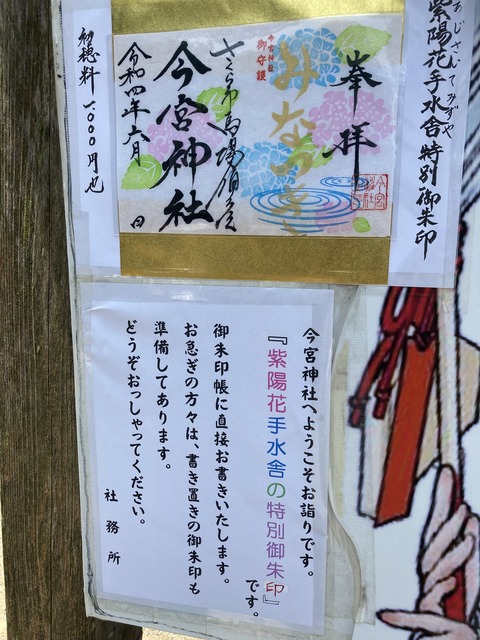 紫陽花手水舎 特別御朱印
あじさいてみずや
奉拝
みなづき
今宮神社
御守護
さくら市馬場鎮座
今宮神社
令和四年六月
日
初穂料 一、〇〇〇円也
今宮神社へようこそお詣りです。
『紫陽花手水舎の特別御朱印』
です。
御朱印帳に直接お書きいたします。
お急ぎの方々は、書き置きの御朱印も
準備してあります。
どうぞおっしゃってください。
社務所